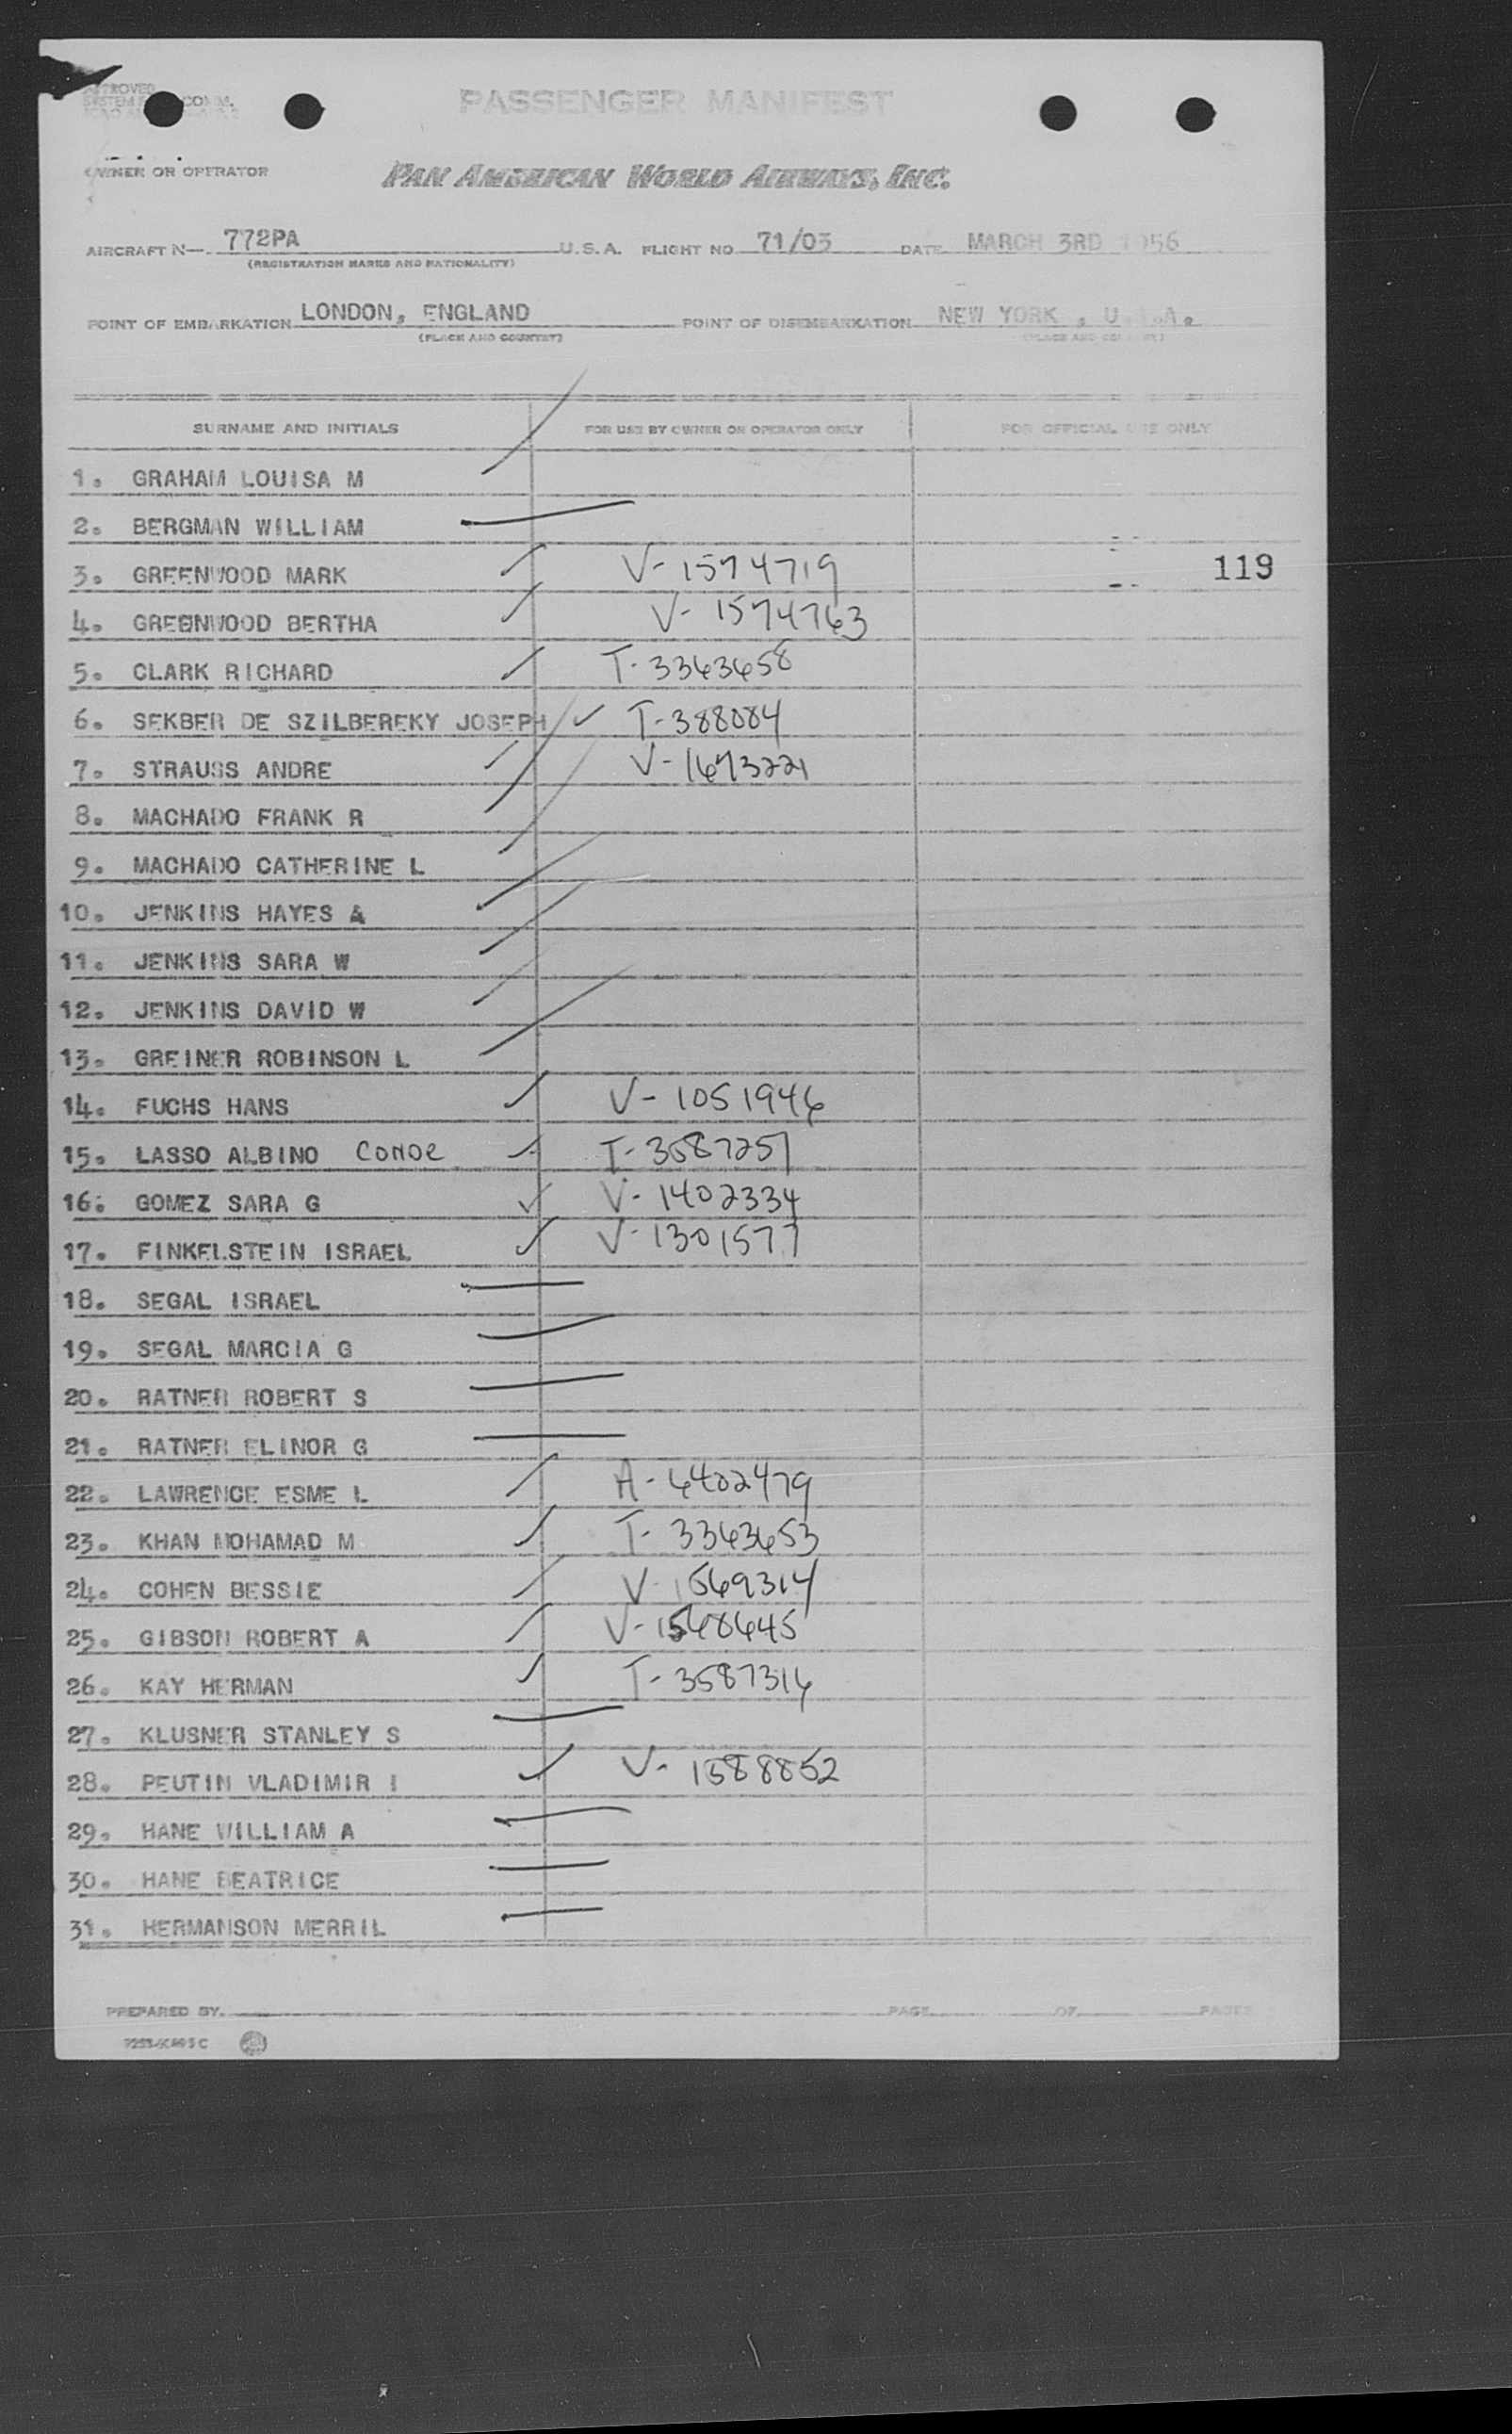 PASSENGER MANIFEST
OWNER OR OPERATOR PAN AMERICAN WORLD AIRWAYS, INC.
AIRCRAFT N— 772PA U.S.A. FLIGHT NO 71/03 DATE MARCH 3RD 1956
(REGISTRATION MARKS AND NATIONALITY)
POINT OF EMBARKATION LONDON, ENGLAND POINT OF DISEMBARKATION NEW YORK , U.S.A.
(PLACE AND COUNTRY) (PLACE AND COUNTRY)
SURNAME AND INITIALS FOR USE BY OWNER OR OPERATOR ONLY FOR OFFICIAL USE ONLY
1. GRAHAM LOUISA M
2. BERGMAN WILLIAM
3. GREENWOOD MARK V-1574719 119
4. GREENWOOD BERTHA V-1574763
5. CLARK RICHARD T-3363658
6. SEKBER DE SZILBEREKY JOSEPH T-388084
7. STRAUSS ANDRE V-1673221
8. MACHADO FRANK R
9. MACHADO CATHERINE L
10. JENKINS HAYES A
11. JENKINS SARA W
12. JENKINS DAVID W
13. GREINER ROBINSON L
14. FUCHS HANS V-1051946
15. LASSO ALBINO CONDE T-3587257
16. GOMEZ SARA G V-1402334
17. FINKELSTEIN ISRAEL V-1301577
18. SEGAL ISRAEL
19. SEGAL MARCIA G
20. RATNER ROBERT S
21. RATNER ELINOR G
22. LAWRENCE ESME L A-6402479
23. KHAN MOHAMAD M T-3363653
24. COHEN BESSIE V-1569314
25. GIBSON ROBERT A V-1568645
26. KAY HERMAN T-3587316
27. KLUSNER STANLEY S
28. PEUTIN VLADIMIR I V-1588852
29. HANE WILLIAM A
30. HANE BEATRICE
31. HERMANSON MERRIL
PREPARED BY. PAGE OF PAGES